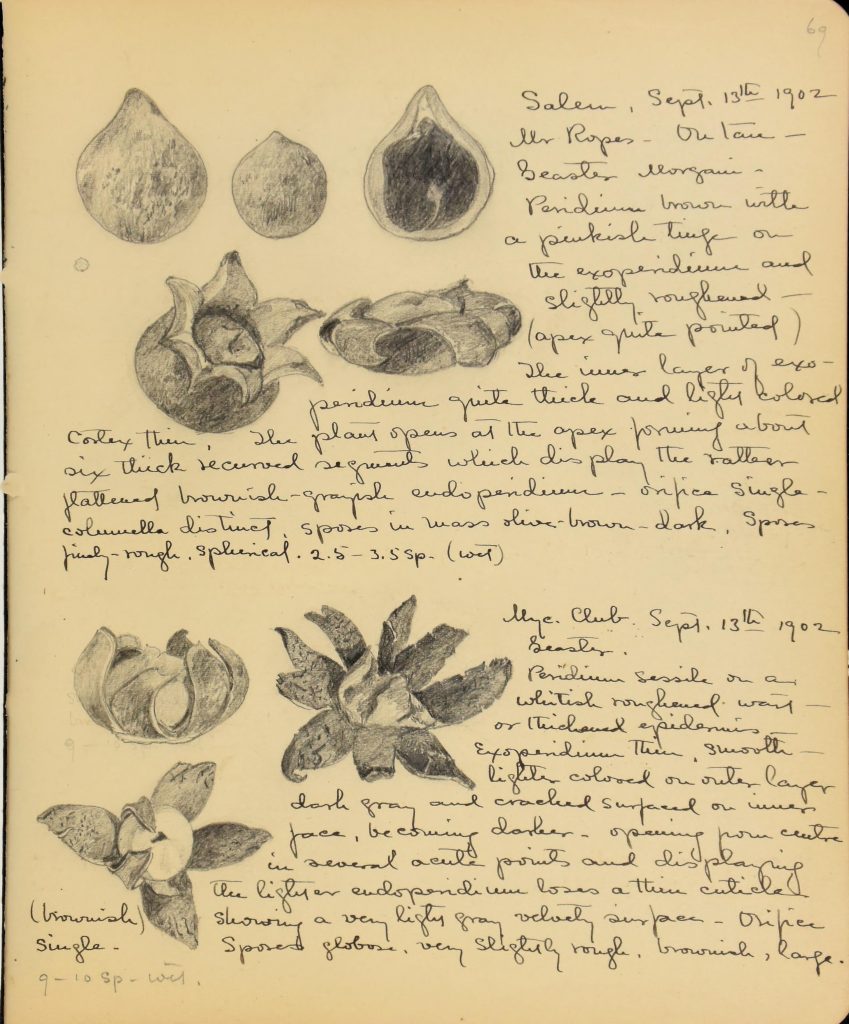 69
Salem, Sept. 13th 1902
Mr Ropes - On tan -
Geaster Morgani -
Peridium brown with
a pinkish tinge on
the exoperidium and
slightly roughened -
(apex quite pointed)
The inner layer of exo-
peridium quite thick and light colored
Cortex thin. The plant opens at the apex forming about
six thick recurved segments which display the rather
flattened brownish-grayish endoperidium - orifice single -
columella distinct, spores in mass olive-brown - dark, Spores
finely-rough, spherical. 2.5 - 3.5 sp. (wet)
Myc. Club. Sept. 13th 1902
Geaster.
Peridium sessile on a
whitish roughened wart -
or thickened epidermis -
Exoperidium thin, smooth -
lighter colored on outer layer
dark gray and cracked surfaced on inner
face, becoming darker - opening from centre
in several acute points and displaying
the lighter endoperidium loses a thin cuticle
(brownish) showing a very light gray velvety surface - Orifice
single - Spores globose, very slightly rough, brownish, large.
9 - 10 sp - wet.